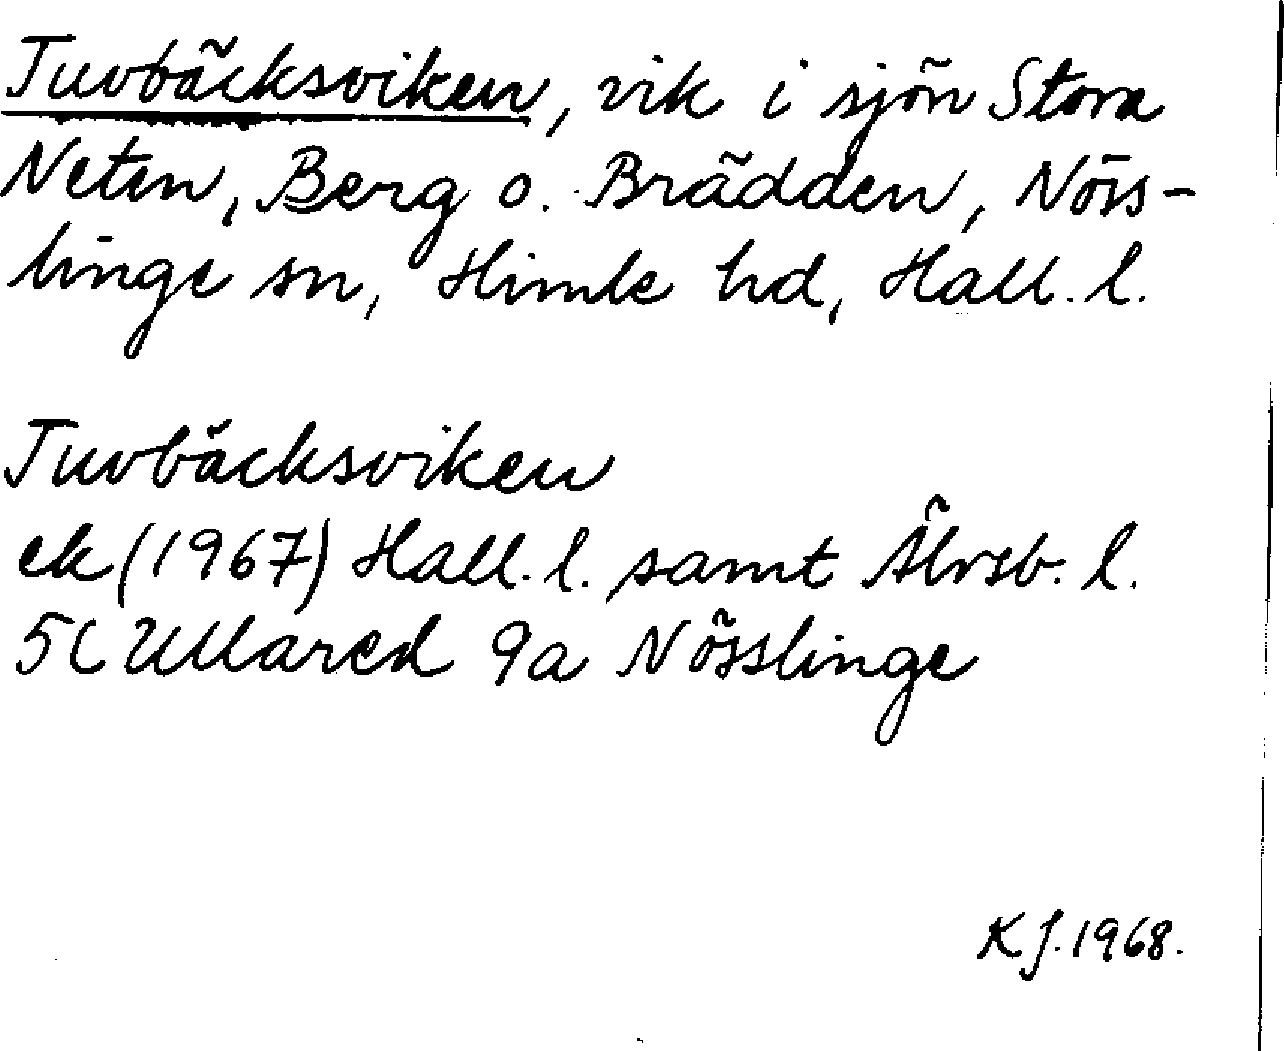 Tuvbäcksviken, vik i sjön Stora
Neten, Berg o. Brädden, Nöss-
linge sn, Himle hd, Hall. l.
Tuvbäcksviken
ek (1967) Hall. l. samt Älvsb. l.
5C Ullared 9a Nösslinge
KJ. 1968.